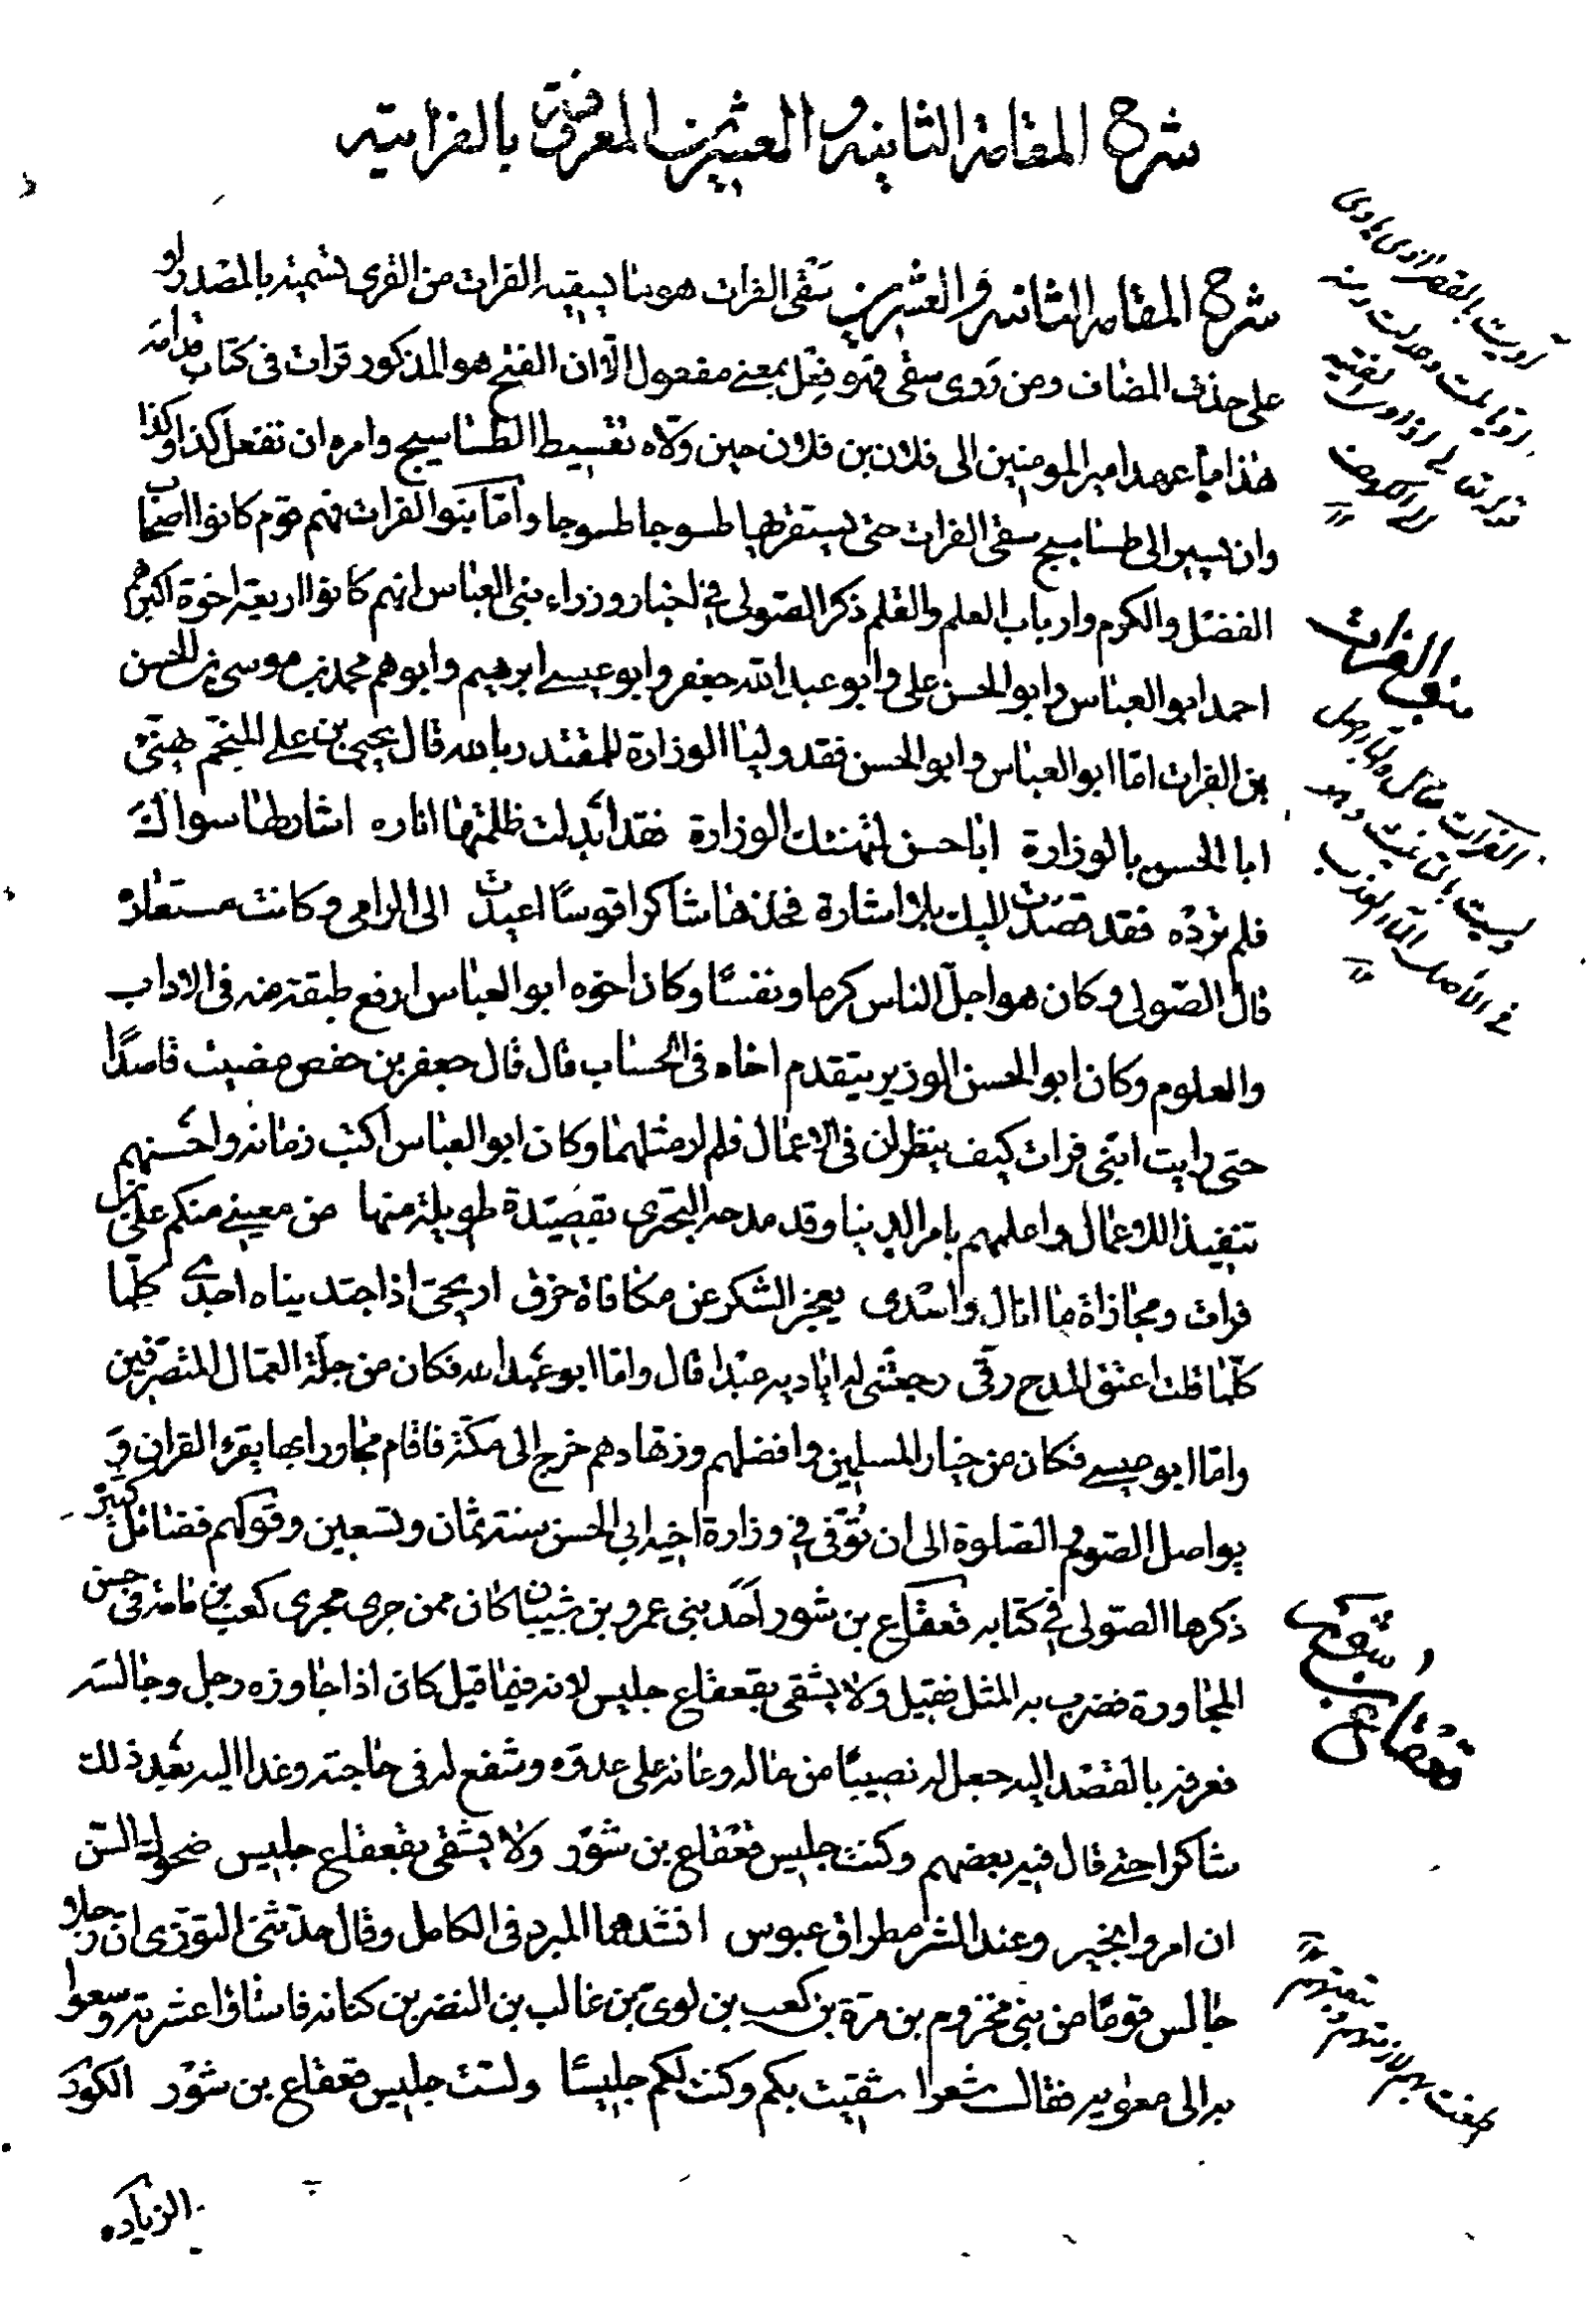 شرح المقامة الثانية والعشرين المعروفة بالفراتية
شرح المقامه الثانيه والعشرين سَقْى الفرات هو ما يسقيه الفرات من القرى تسمية بالمصدر او
على حذف المضاف ومن رَوى سقى فهو فِعْل بمعنے مفعول الّا ان الفتح هو المذكور قرات فى كتاب قدامَة
هٰذا ما عهد امير المومنين الى فلان بن فلان حين ولّاه تقسيط الطساسيج وامره ان تفعل كذا وكذا
وان يسير الى طساسيج سقى الفرات حتى يستقريها طسوجا طسوجا وامّا بنوا الفرات فهم قوم كانوا اصحاب
الفضل والكرم وارباب العلم والقلم ذكر الصّولى فى اخبار وزراء بنى العباس انهم كانوا اربعة اخوة اكبرهم
احمد ابو العباس وابو الحسن على وابو عبد الله جعفر وابو عيسے ابرهيم وابوهم محمد بن موسى بن الحسن
بن الفرات امّا ابو العباس وابو الحسن فقد وليا الوزارة للمقتدر بالله قال يحيى بن على المنجّم يهنّئ
ابا الحسن بالوزارة اباحسن لتهنئك الوزارة فقد ابدلت ظلمتها اناره اشار لها سواك
فلم تُرْده فقد قصدت اليك بلا اشارة فخذها شاكرا قوسًا اعيدت الى الرامى وكانت مستعارة
قال الصّولى وكان هو اجلّ الناس كرما ونفسًا وكان اخوه ابو العباس ارفع طبقة منه فى الاداب
والعلوم وكان ابو الحسن الوزير يتقدم اخاه فى الحساب قال قال جعفر بن حفص مضيت قاصدًا
حتى رايت ابنى فرات كيف ينظران فى الاعمال فلم ار مثلهما وكان ابو العباس اكتب زمانه واحسنهم
تنفيذا للاعمال واعلمهم بامر الدنيا وقد مدحه البحترى بقصيدة طويلة منها من معينے منكم على بن
فرات ومجازاة ما انال واسْدى يعجز الشكر عن مكافاة خرق اريحىّ اذا اجتديناه اجدى كلّما
كلّما قلت اعتق المدح رقّى رجعتْنى له اياديه عبْدا قال وامّا ابو عبد الله فكان من جلّة العمّال المتصرّفين
وامّا ابو عيسے فكان من خيار المسلمين وافضلهم وزهادهم خرج الى مكّة فاقام مجاورا بها يقرء القران وَ
يواصل الصوم والصلوة الى ان توّفى فى وزارة اخيه ابى الحسن سنة ثمان وتسعين وقولهم فضائل كثيرة
ذكرها الصّولى فى كتابه قعقاع بن شور احَد بنى عمرو بن شيبان كان ممن جرى مجرى كعب بن مامة فى حسن
المجاورة فضرب به المثل فقيل ولا يشقى بقعقاع جليس لانه فيما قيل كان اذا جاوره رجل وجالسه
فعرفه بالقصد اليه جعل له نصيبًا من ماله وعانه على عدوّه وشفع له فى حاجته وغدا اليه بعد ذلك
شاكرا حتى قال فيه بعضهم وكنت جليس قعْقاع بن شوْر ولا يشقى بقعقاع جليس ضحوك السّن
ان امروا بخير وعند الشر مطراق عبوس انشدهما المبرد فى الكامل وقال حدّثنى التوّزى انّ رجلا
جالس قومًا من بنى مخزوم بن مرّة بن كعب بن لوىّ بن غالب بن النضر بن كنانه فاساؤا عشرته وسعوا
به الى معويه فقال شعرا شقيت بكم وكنت لكم جليسًا ولست جليس قعقاع بن شوْر الكَوْدَ
الزيادة
بنو الفرات
قعقاع بن شور